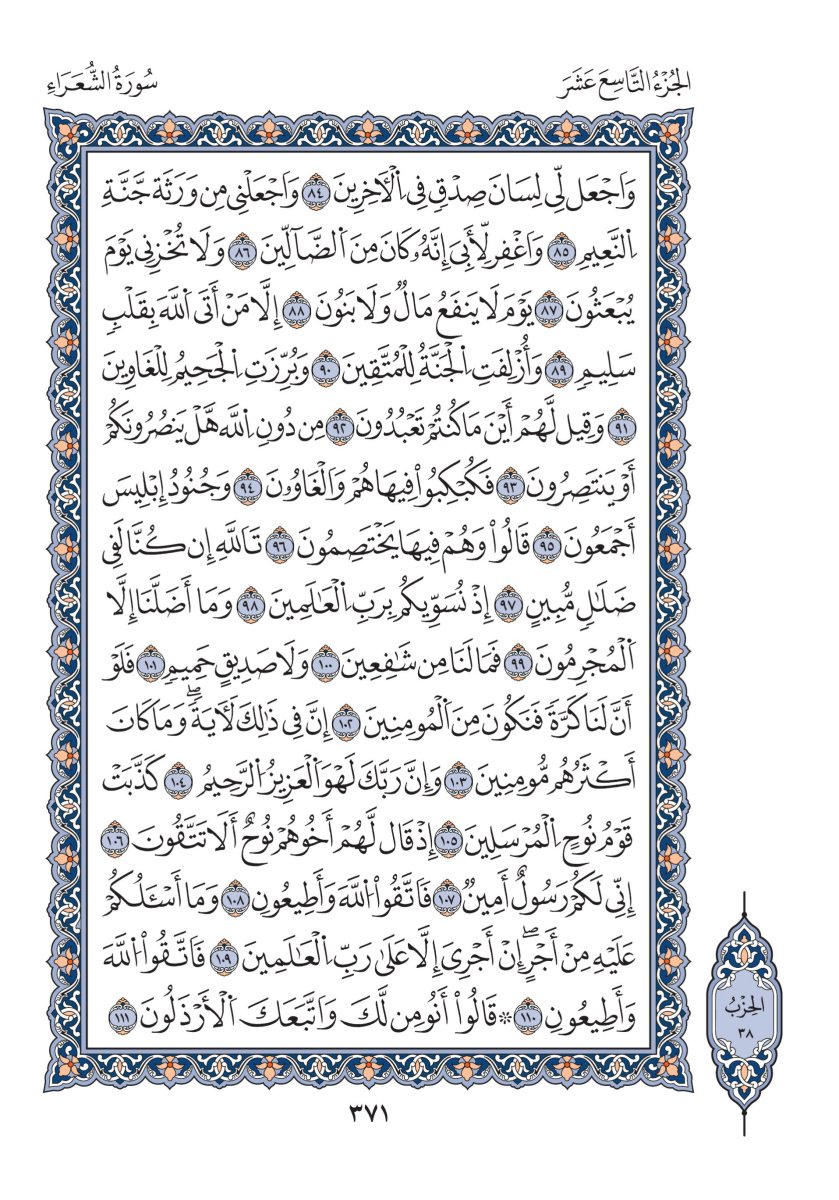 الجُزْءُ التَّاسِعَ عَشَرَ
سُورَةُ الشُّعَرَاءِ
وَاَجْعَل لِّى لِسَانَ صِدْقٍ فِى اِ۬لْأَخِرِينَ ٨٤ وَاَجْعَلْنِى مِن وَرَثَة جَّنَّةِ
اِ۬لنَّعِيمِ ٨٥ وَاَغْفِر لِّأَبِىَ إِنَّهُۥ كَانَ مِنَ اَ۬لضَّآلِّينَ ٨٦ وَلَا تُخْزِنِى يَوْمَ
يُبْعَثُونَ ٨٧ يَوْمَ لَا يَنفَعُ مَالٌ وَلَا بَنُونَ ٨٨ إِلَّا مَنْ أَتَى اَ۬للَّهَ بِقَلْبٍ
سَلِيمٍ ٨٩ وَأُزْلِفَتِ اِ۬لْجَنَّةُ لِلْمُتَّقِينَ ٩٠ وَبُرِّزَتِ اِ۬لْجَحِيمُ لِلْغَاوِينَ
٩١ وَقِيل لَّهُمْ أَيْنَ مَا كُنتُمْ تَعْبُدُونَ ٩٢ مِن دُونِ اِ۬للَّه هَّلْ يَنصُرُونَكُمْ
أَوْ يَنتَصِرُونَ ٩٣ فَكُبْكِبُواْ فِيهَا هُمْ وَالْغَاوُۥنَ ٩٤ وَجُنُودُ إِبْلِيسَ
أَجْمَعُونَ ٩٥ قَالُواْ وَهُمْ فِيهَا يَخْتَصِمُونَ ٩٦ تَاللَّهِ إِن كُنَّا لَفِى
ضَلَٰلٍ مُّبِينٍ ٩٧ إِذْ نُسَوِّيكُم بِرَبِّ اِ۬لْعَٰلَمِينَ ٩٨ وَمَا أَضَلَّنَا إِلَّا
اَ۬لْمُجْرِمُونَ ٩٩ فَمَا لَنَا مِن شَٰفِعِينَ ١٠٠ وَلَا صَدِيقٍ حَمِيمٍ ١٠١ فَلَوْ
أَنَّ لَنَا كَرَّةً فَنَكُونَ مِنَ اَ۬لْمُومِنِينَ ١٠٢ إِنَّ فِى ذَٰلِكَ لَأٓيَةًۖ وَمَا كَانَ
أَكْثَرُهُم مُّومِنِينَ ١٠٣ وَإِنَّ رَبَّكَ لَهْوَ اَ۬لْعَزِيزُ اُ۬لرَّحِيمُ ١٠٤ كَذَّبَتْ
قَوْمُ نُوحٍ اِ۬لْمُرْسَلِينَ ١٠٥ إِذْ قَال لَّهُمْ أَخُوهُمْ نُوحٌ أَلَا تَتَّقُونَ ١٠٦
إِنِّى لَكُمْ رَسُولٌ أَمِينٌ ١٠٧ فَاتَّقُواْ اُ۬للَّهَ وَأَطِيعُونِ ١٠٨ وَمَا أَسْـَٔلُكُمْ
عَلَيْهِ مِنْ أَجْرٍۖ إِنْ أَجْرِىَ إِلَّا عَلَىٰ رَبِّ اِ۬لْعَٰلَمِينَ ١٠٩ فَاتَّقُواْ اُ۬للَّهَ
وَأَطِيعُونِ ١١٠ ۞ قَالُواْ أَنُومِن لَّكَ وَاتَّبَعَكَ اَ۬لْأَرْذَلُونَ ١١١
الحِزْبُ
٣٨
٣٧١